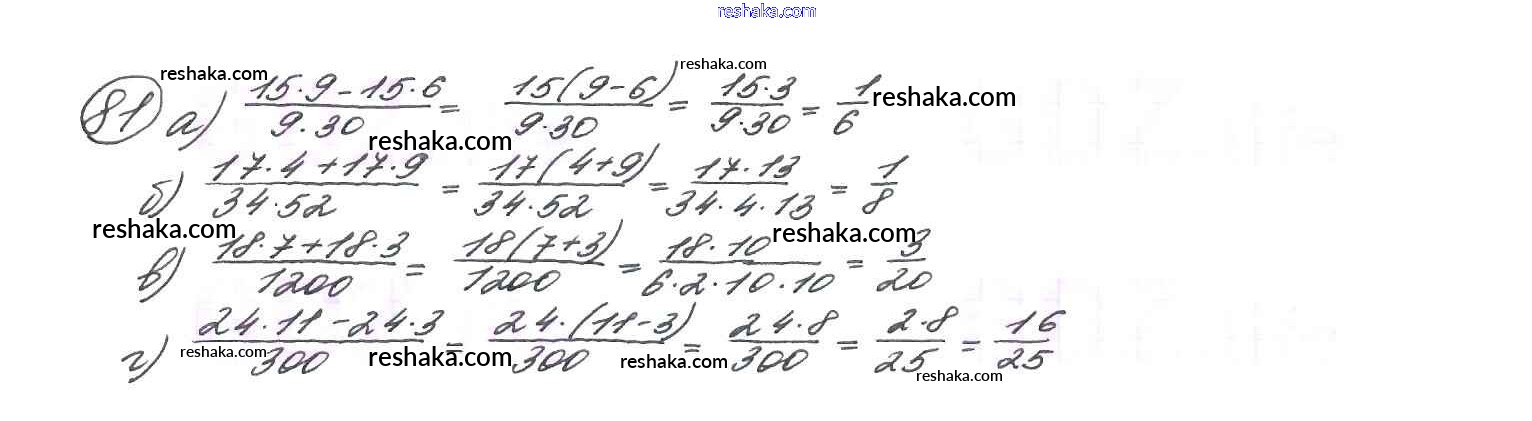 reshaka.com
81 а) (15·9-15·6)/(9·30) = (15(9-6))/(9·30) = (15·3)/(9·30) = 1/6
reshaka.com reshaka.com reshaka.com reshaka.com
б) (17·4+17·9)/(34·52) = (17(4+9))/(34·52) = (17·13)/(34·4·13) = 1/8
reshaka.com reshaka.com
в) (18·7+18·3)/1200 = (18(7+3))/1200 = (18·10)/(6·2·10·10) = 3/20
г) (24·11-24·3)/300 = (24·(11-3))/300 = (24·8)/300 = (2·8)/25 = 16/25
reshaka.com reshaka.com reshaka.com reshaka.com